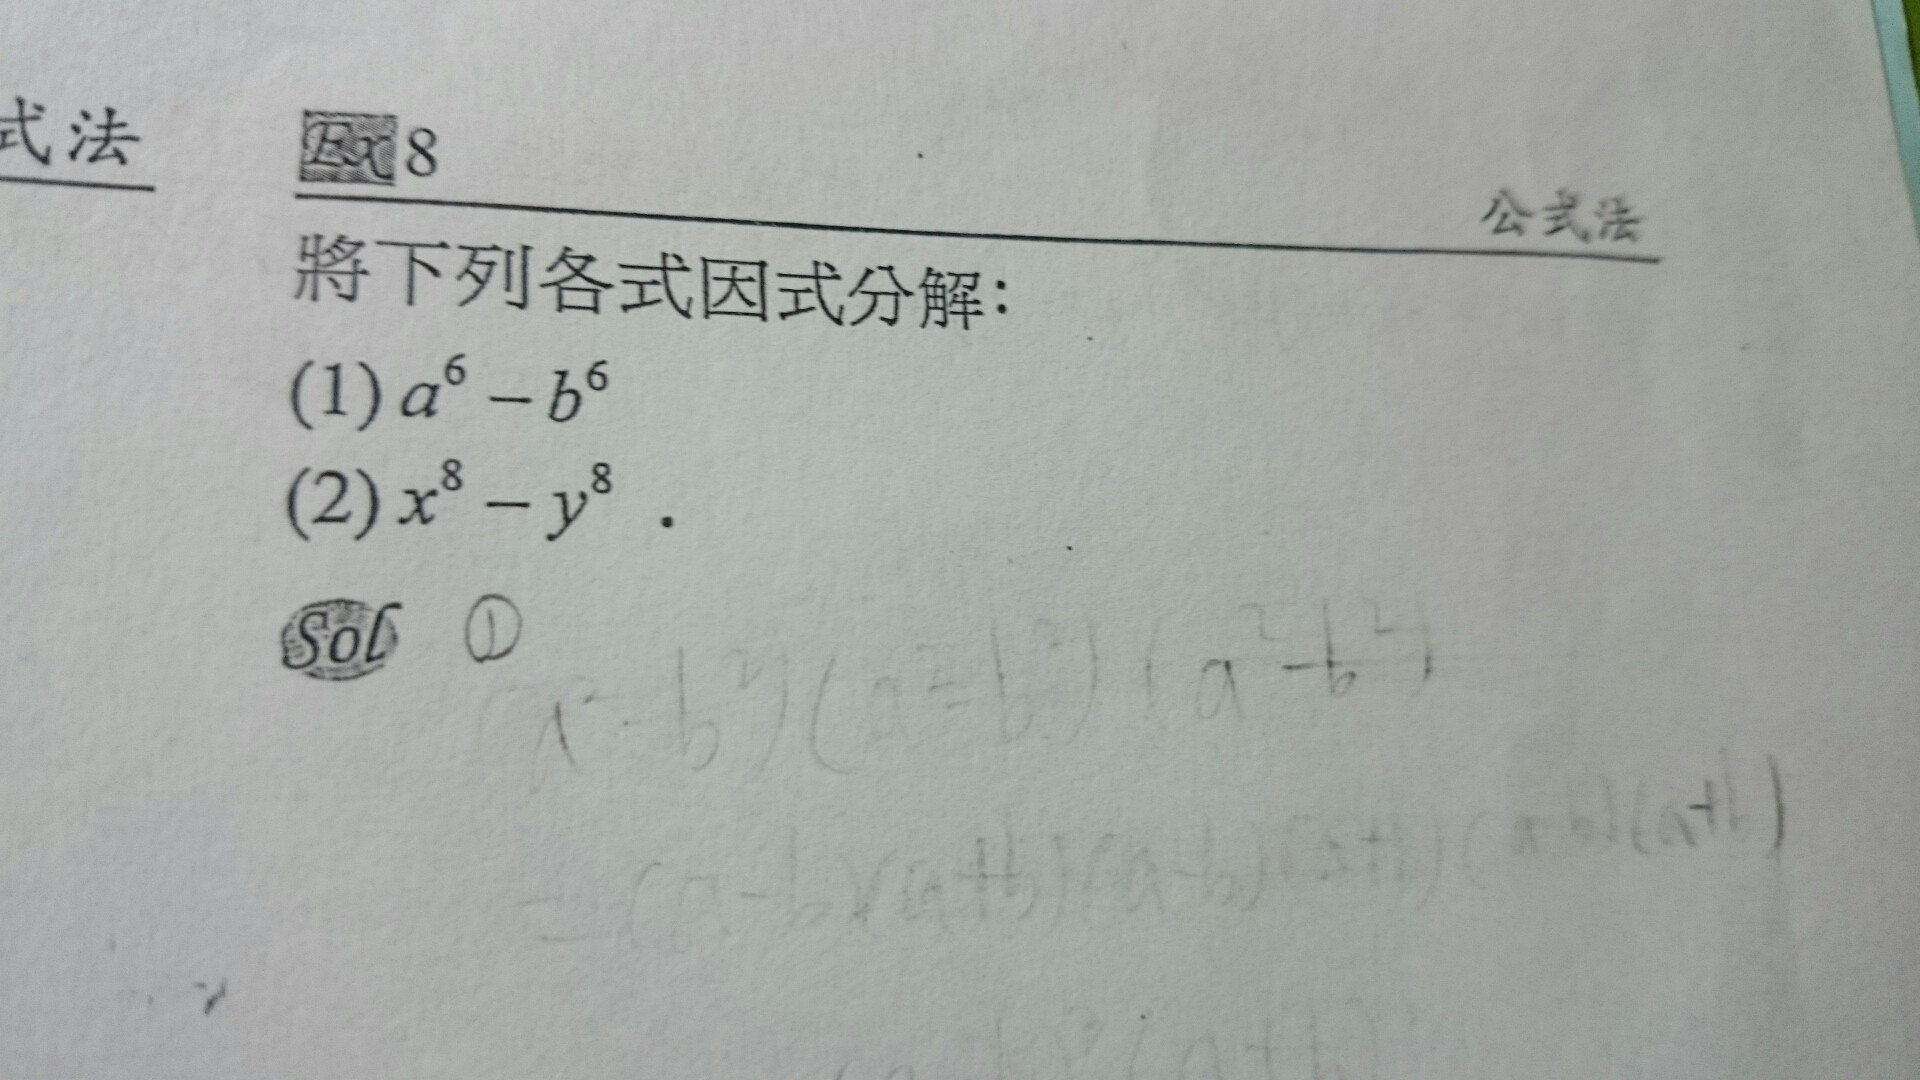 式法
Ex 8
公式法
將下列各式因式分解：
(1) a⁶ − b⁶
(2) x⁸ − y⁸ .
Sol ①
²-b²)(a²-b²)(a²-b²)
=(a-b)(a+b)(a-b)(a+b)(a-b)(a+b)
(a+b)